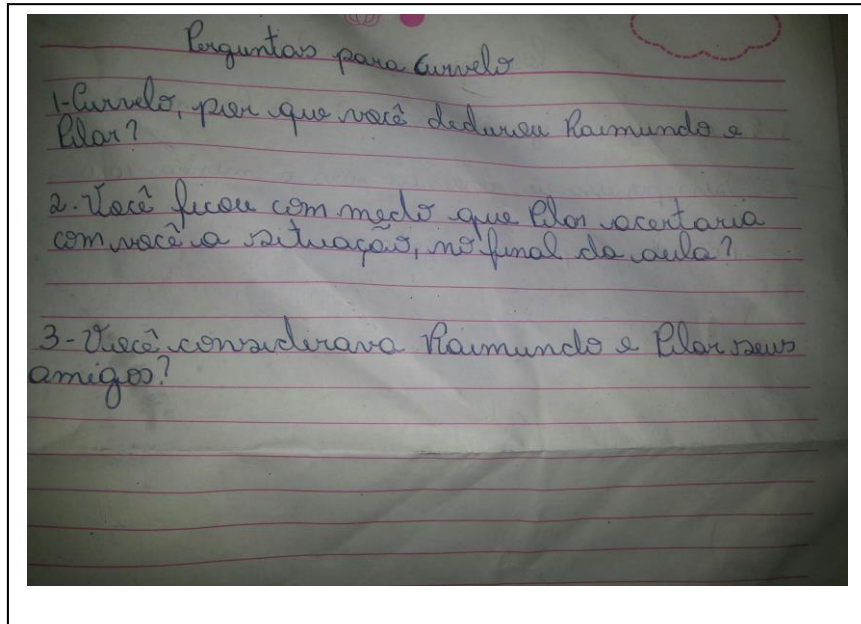 Perguntas para Curvelo
1-Curvelo, por que você dedurou Raimundo e
Pilar?
2-Você ficou com medo que Pilar acertaria
com você a situação, no final da aula?
3-Você considerava Raimundo e Pilar seus
amigos?